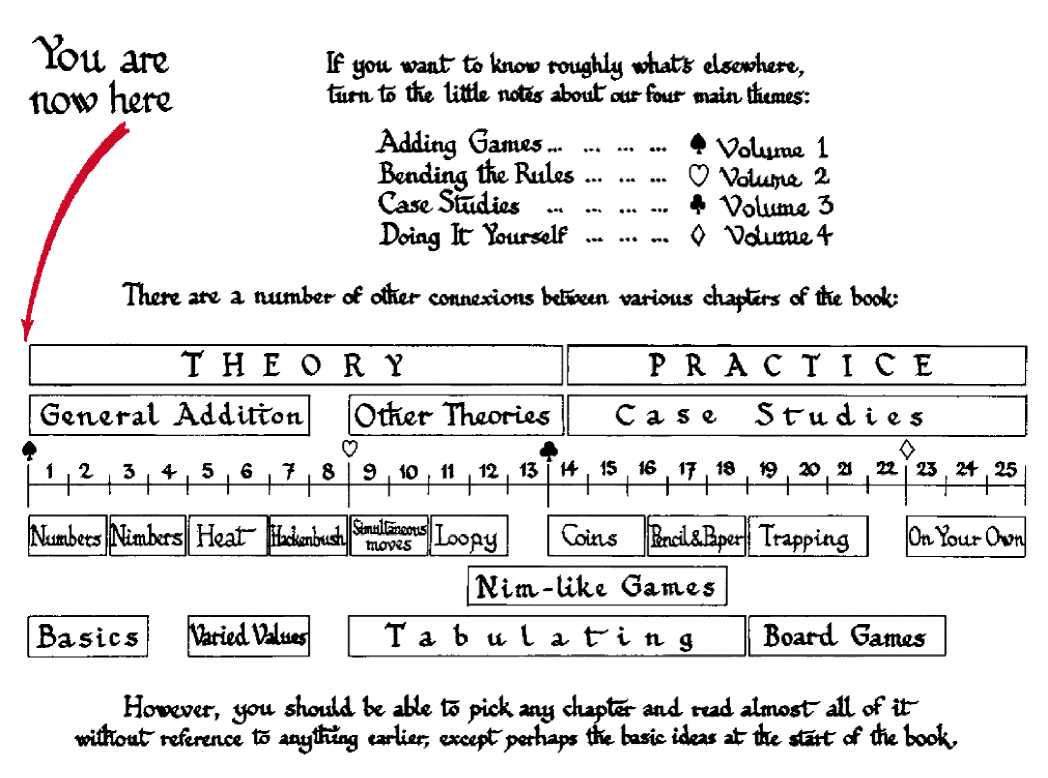 You are
now here
If you want to know roughly what's elsewhere,
turn to the little notes about our four main themes:
Adding Games ... ... ... ... ♠ Volume 1
Bending the Rules ... ... ... ♡ Volume 2
Case Studies ... ... ... ... ♣ Volume 3
Doing It Yourself ... ... ... ◊ Volume 4
There are a number of other connexions between various chapters of the book:
THEORY PRACTICE
General Addition Other Theories Case Studies
♠ ♡ ♣ ◊
1 2 3 4 5 6 7 8 9 10 11 12 13 14 15 16 17 18 19 20 21 22 23 24 25
Numbers Nimbers Heat Hackenbush Simultaneous moves Loopy Coins Pencil & Paper Trapping On Your Own
Nim-like Games
Basics Varied Values Tabulating Board Games
However, you should be able to pick any chapter and read almost all of it
without reference to anything earlier, except perhaps the basic ideas at the start of the book.